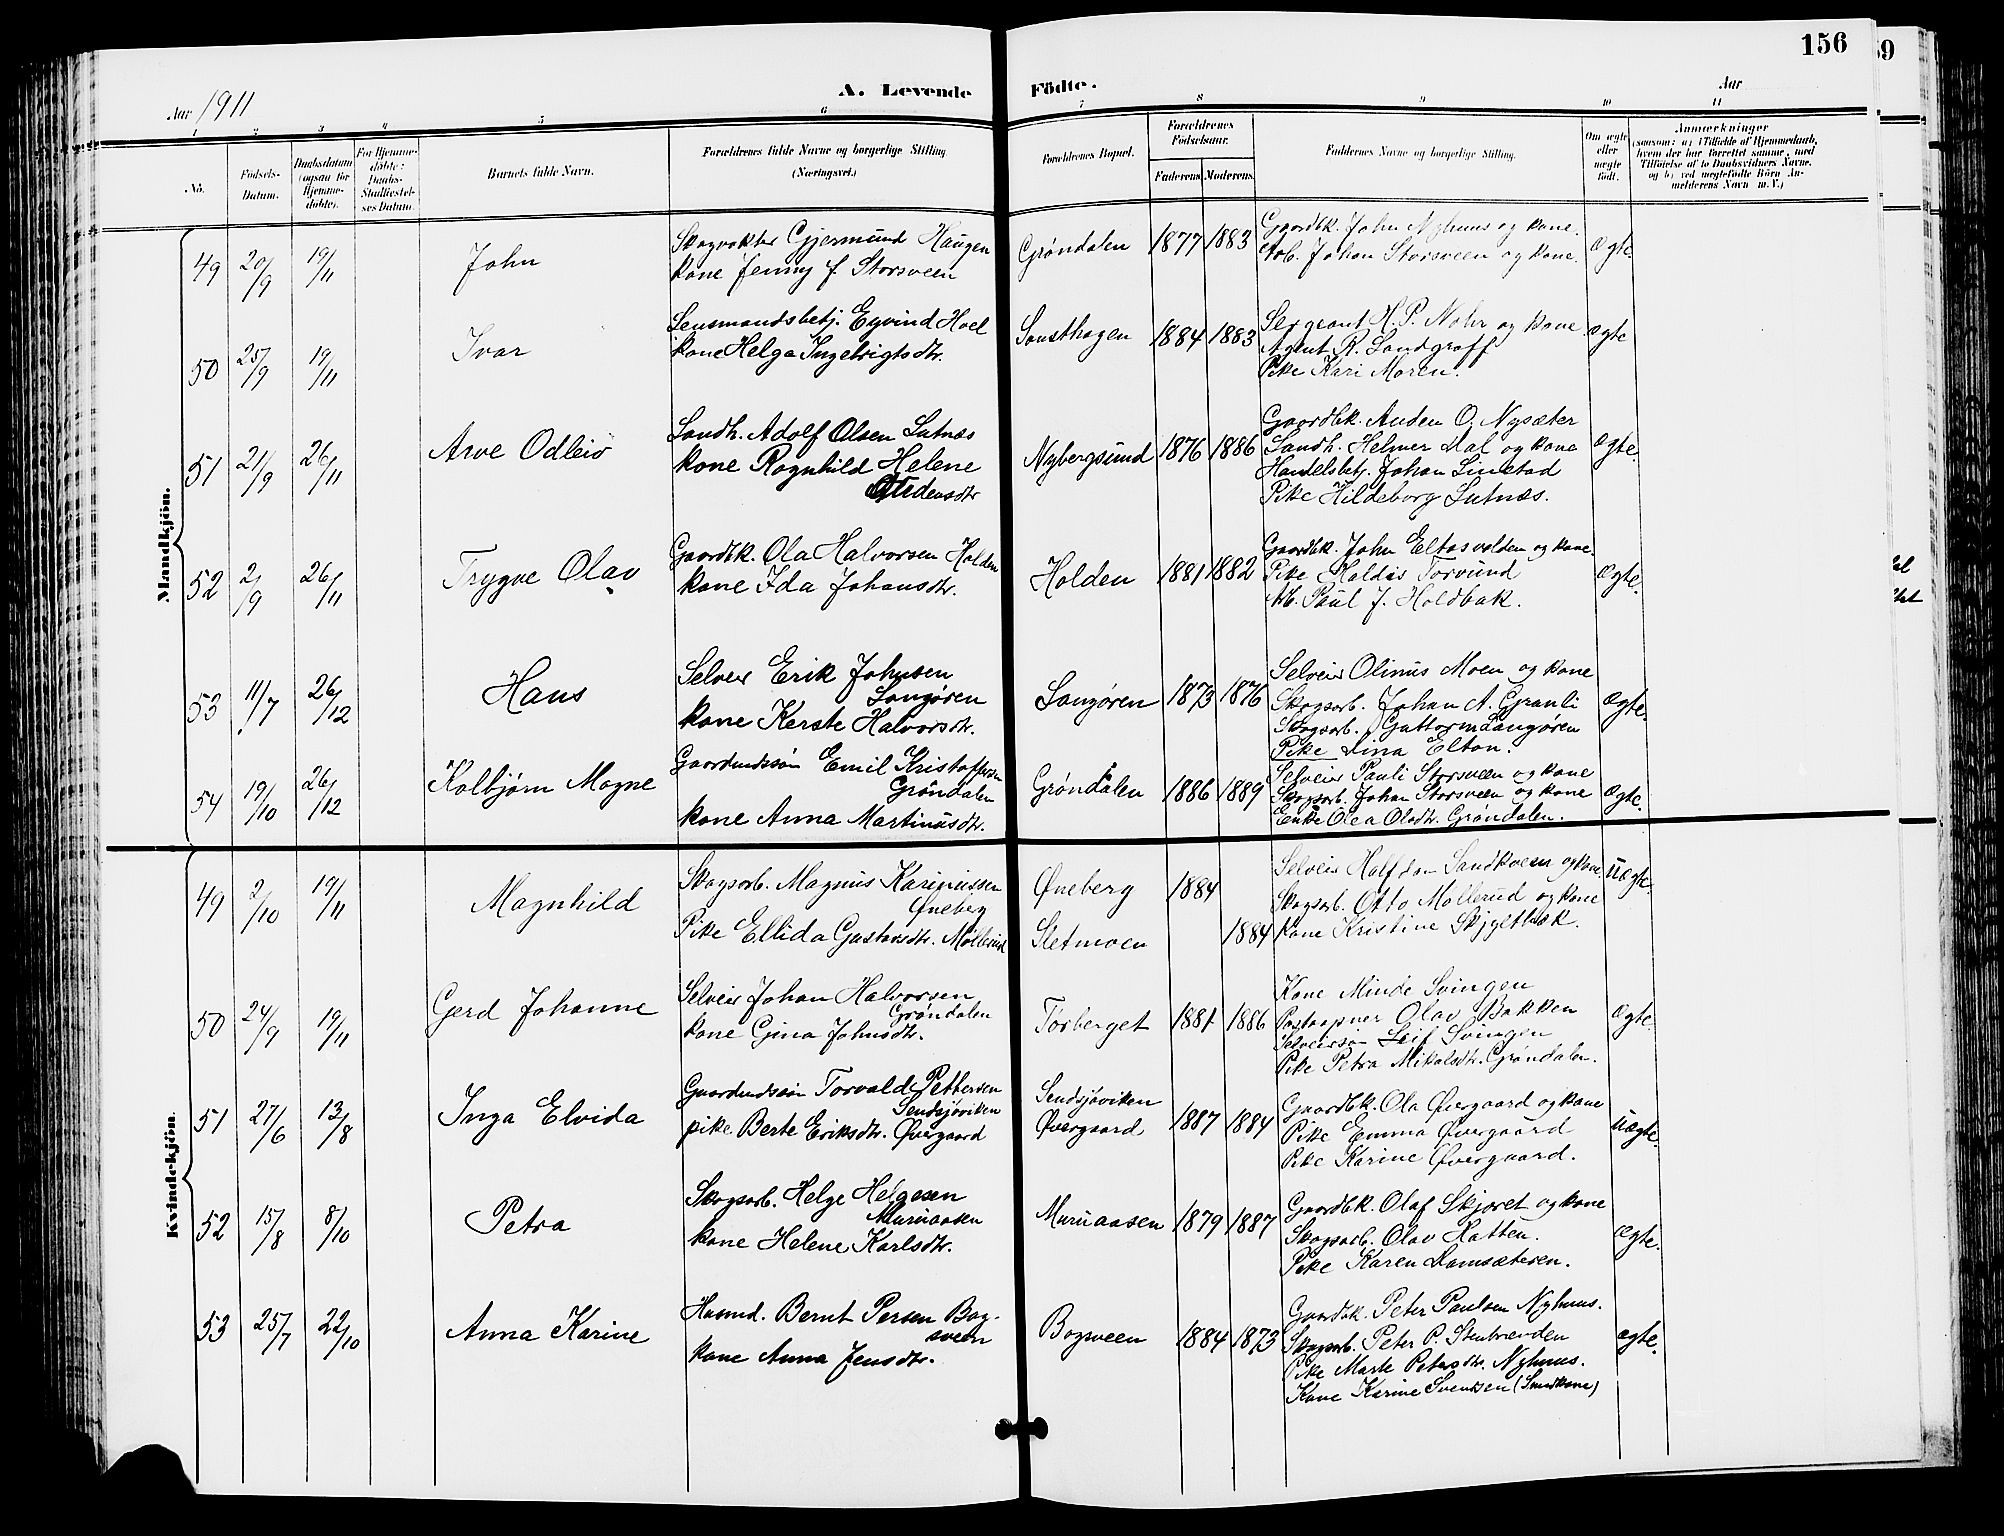 156
59
A. Levende Födte.
Aar 1911
Aar
1 2 3 4 5 6 7 8 9 10 11
No.
Födsels-Datum.
Daabsdatum (ogsaa for Hjemmedöbte).
For Hjemmedöbte: Daabs-Stadfæstelses Datum.
Barnets fulde Navn.
Forældrenes fulde Navne og borgerlige Stilling (Næringsvei.)
Forældrenes Bopæl.
Forældrenes Födselsaar.
Faderens. Moderens.
Faddernes Navne og borgerlige Stilling.
Om ægte eller uægte født.
Anmærkninger
(saasom: a) i Tilfælde af Hjemmedaab, hvem der har forrettet samme, med Tilföielse af to Daabsvidners Navne, og b) ved uægtefödte Börn Anmelderens Navn m.V.)
Mandkjön.
49 20/9 19/11 John
Skogvokter Gjermund Haugen
kone Jenny f. Storsveen
Grøndalen 1877 1883
Gaardbk. John Nyhuus og kone.
Arb. Johan Storsveen og kone.
Ægte.
50 25/9 19/11 Ivar
Lensmandsbetj. Eyvind Hoel
kone Helga Ingebrigtsdtr.
Sousthagen 1884 1883
Sergeant H. P. Nohr og kone.
Agent R. Landgraff
Pike Kari Moren.
Ægte
51 21/9 26/11 Arve Odleiv
Landh. Adolf Olsen Lutnæs
kone Ragnhild Helene
Stedensdtr
Nybergsund 1876 1886
Gaardbk. Anden O. Nysæter
Landh. Helmer Dal og kone
Handelsbetj. Johan Linstad
Pike Hildeborg Lutnæs.
Ægte.
52 2/9 26/11 Trygve Olav
Gaardbk. Ola Halvorsen Holden
kone Ida Johansdtr.
Holden 1881 1882
Gaardbk. John Eltosvolden og kone.
Pike Haldis Torvund
Arb. Paul J. Holdbak.
Ægte.
53 11/7 26/12 Hans
Selveier Erik Johnsen
Langøren
kone Kerste Halvorsdtr.
Langøren 1873 1876
Selveier Olinus Moen og kone
Skogsarb. Johan A. Granli
Skogsarb. Guttorm Langøren
Pike Lina Elton.
Ægte.
54 19/10 26/12 Kolbjørn Magne
Gaardmdssøn Emil Kristoffersen
Grøndalen
kone Anna Martinusdtr.
Grøndalen 1886 1889
Selveier Pauli Storsveen og kone
Skogsarb. Johan Storsveen og kone
Enke Olea Olsdtr. Grøndalen.
Ægte.
Kvindekjön.
49 2/10 19/11 Magnhild
Skogsarb. Magnus Kariniussen
Øneberg
Pike Ellida Gustavsdtr. Møllerud
Øneberg 1884
Sletmoen 1884
Selveier Halfdan Sandkveen og kone.
Skogsarb. Otto Møllerud og kone
kone Kristine Skjyltbæk.
Uægte.
50 24/9 19/11 Gerd Johanne
Selveier Johan Halvorsen
Grøndalen
kone Gina Johnsdtr.
Tørberget 1881 1886
Kone Minde Svingen
Postaapner Olav Bakken
Selveiersøn Leif Svingen
Pike Petra Mikalsdtr. Grøndalen.
Ægte.
51 27/6 13/8 Inga Elvida
Gaardmdssøn Torvald Pettersen
Sendsjøviken
pike Berte Eriksdtr. Øvergaard
Sendsjøviken
Øvergaard 1887 1884
Gaardbk. Ola Øvergaard og kone
Pike Emma Øvergaard
Pike Karine Øvergaard.
Uægte.
52 15/8 8/10 Petra
Skogsarb. Helge Helgesen
Muruaasen
kone Helene Karlsdtr.
Muruaasen 1879 1887
Gaardbk. Olaf Skjøret og kone
Skogsarb. Olav Hatten.
Pike Karen Damsæteren.
Ægte.
53 25/7 22/10 Anna Karine
Husmd. Bernt Persen Bogsveen
kone Anna Jensdtr.
Bogsveen 1884 1873
Gaardbk. Peter Paulsen Nyhuus.
Skogsarb. Peter P. Stenbrenden
Pike Marte Petersdtr. Nyhuus.
Kone Karine Svendsen (Smedkone)
Ægte.